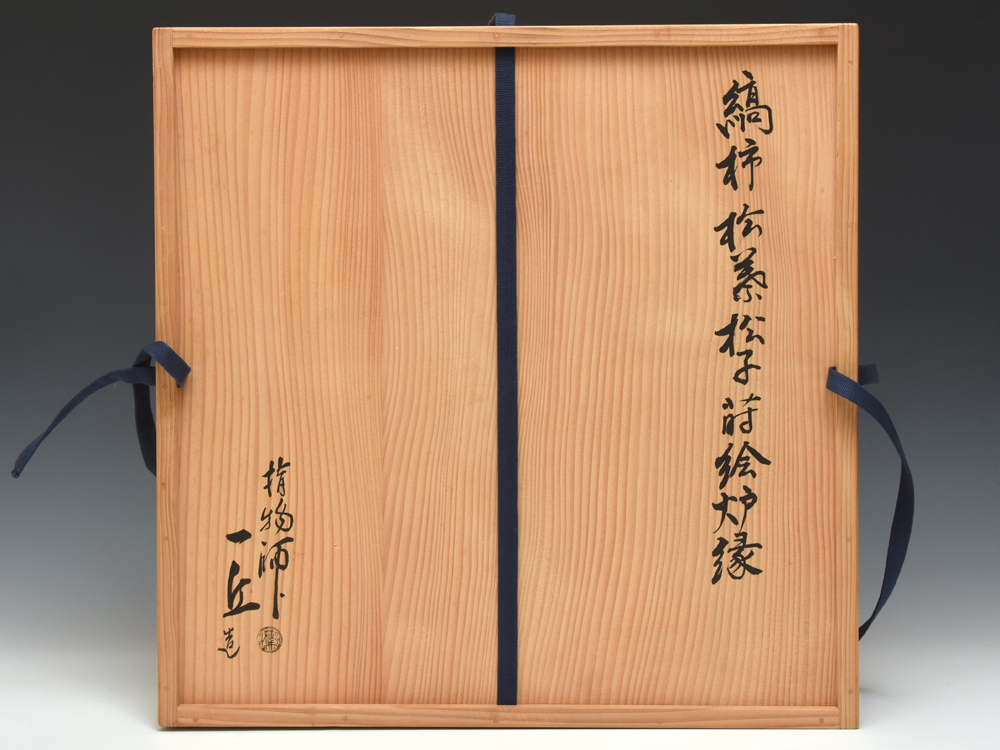 縞柿松葉松子蒔絵炉縁
指物師
一丘
造